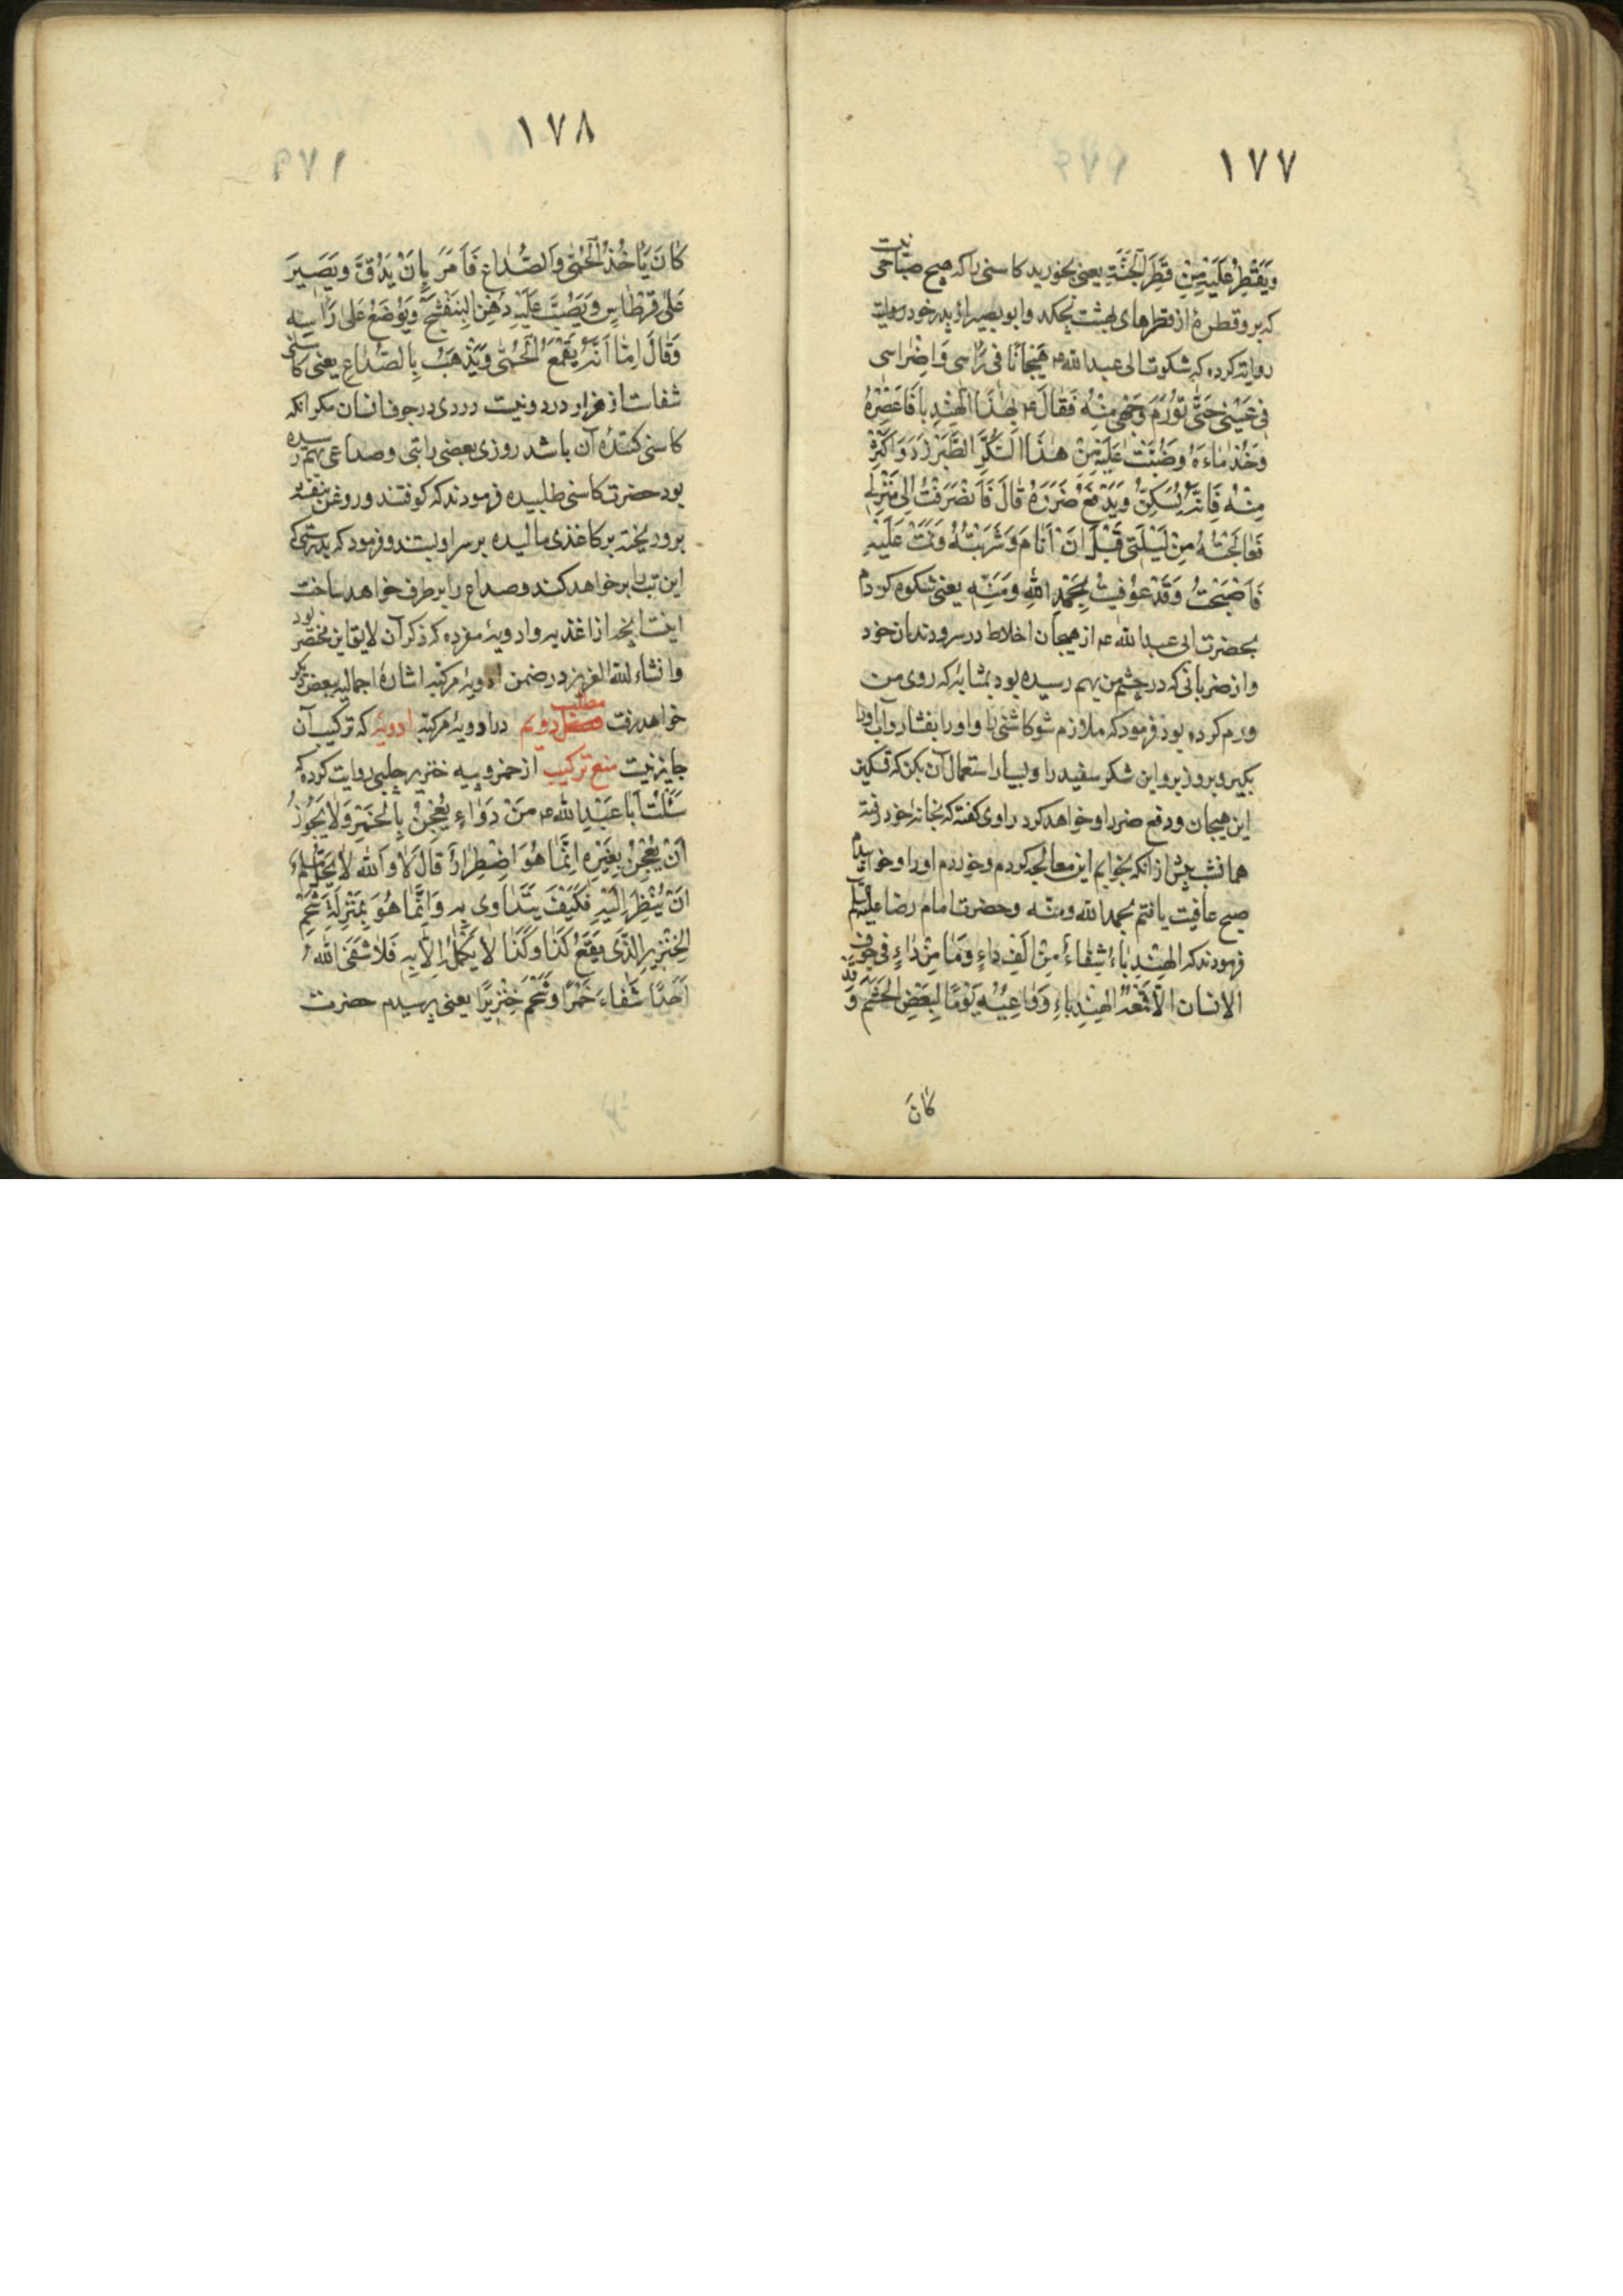 ١٧٧
وَيَقْطِرُ عَلَيْهِ مِنْ قَطْرِ الْجَنَّةِ یعنی بخورید کاسنی را که هیچ صباحی نیست
که برو قطرهٔ از قطرهای بهشت نچکد و ابو بصیر از پدر خود روایت
روایت کرده که شکوت الی عبد الله ع هَیَجانًا فی رَاْسی وَاضْراسی
فی عَیْنی حَتّٰی تَوَّرَمَ وَجْهی مِنْهُ فَقالَ ع بِهٰذَا الْهِنْدِبا فَاعْصِرْهُ
وَخُذْ ماءَهُ وَصُبَّتْ عَلَیْهِ مِنْ هٰذَا السُّکَّرِ الطَّبَرْزَدِ وَاَکْثِرْ
مِنْهُ فَاِنَّهُ یُسَکِّنُ وَیَدْفَعُ ضَرَرَهُ قالَ فَانْصَرَفْتُ اِلیٰ مَنْزِلی
فَعٰالَجْتُهُ مِنْ لَیْلَتی قَبْلَ اَنْ اَنامَ وَشَرِبْتُهُ وَنِمْتُ عَلَیْهِ
فَاَصْبَحْتُ وَقَدْ عُوفیتُ بِحَمْدِ اللهِ وَمَنِّهِ یعنی شکوه کردم
بحضرت ابی عبد الله ع از هیجان اخلاط در سر و دندان خود
و از ضربانی که در چشم من بهم رسیده بود بمثابهٔ که روی من
ورم کرده بود فرمود که ملازم شو کاسنی را و او را بفشار و آب او را
بگیر و بر وزبر و این شکر سفید را و بسیار استعمال آن بکن که تسکین
این هیجان و دفع ضرر او خواهد کرد راوی گفته که بخانهٔ خود رفته
همان شب پیش از آنکه بخوابم این معالجه کردم و خوردم او را و خوابیدم
صبح عافیت یافتم بحمد الله ومنّه و حضرت امام رضا علیه السلام
فرمودند که الهِنْدِباءُ شِفاءٌ مِنْ اَلْفِ داءٍ وَمٰا مِنْ داءٍ فی جَوْفِ
الانسان الّا قَمَعَهُ الهِنْدِباءِ وَدَعٰی بِهِ یَوْمًا لِبَعْضِ الحَشَمِ وَقَدْ
کٰانَ
١٧٨
کٰانَ یَاْخُذُهُ الْحُمّٰی وَالصُّدٰاعُ فَاَمَرَ بِاَنْ یَدُقَّ وَیَصِیرَ
عَلیٰ قِرْطٰاسٍ وَیَصُبَّ عَلَیْهِ دُهْنَ الْبَنَفْسَجِ وَیُوْضَعُ عَلیٰ رَاْسِهِ
وَقٰالَ اِمّا اَنَّهُ یَقْمَعُ الْحُمّٰی وَیَذْهَبُ بِالصُّدٰاعِ یعنی کاسنی
شفاست از هزار درد و نیست دردی در جوف انسان مگر انکه
کاسنی کنندهٔ آن باشد روزی بعضی را تبی و صداعی بهم رسیده
بود حضرت کاسنی طلبیده فرمودند که کوفتند و روغن بنفشه
برو ریخته بر کاغذی مالیده بر سر او بستند و فرمود که بدرستی که
این تب را بر خواهد کند و صداع را بر طرف خواهد ساخت
اینست آنچه از اغذیه و ادویهٔ مفرده که ذکر آن لایق این مختصر بود
وانشاء الله العزیز در ضمن ادویهٔ مرکبه اشارهٔ اجمالیه ببعض دیگر
خواهد رفت مطلب دویم در ادویهٔ مرکبه ادویهٔ که ترکیب آن
جایز نیست منع ترکیب از خمر و پیه خنزیر حلبی روایت کرده که
سَئَلْتُ اَبا عَبْدِ اللهِ ع مِنْ دَوٰاءٍ یُعْجَنُ بِالْخَمْرِ وَلا یَجُوزُ
اَنْ یُعْجَنَ بِغَیْرِهِ اِنَّمٰا هُوَ اضْطِرٰارٌ قٰالَ لا وَاللهِ لا یَحِلُّ لِمُسْلِمٍ
اَنْ یَنْظُرَ اِلَیْهِ فَکَیْفَ یَتَدٰاوی بِهِ وَاِنَّمٰا هُوَ بِمَنْزِلَةِ شَحْمِ
الْخِنْزیرِ الَّذی یَقَعُ کَذٰا وَکَذٰا لا یَکْمُلُ اِلّا بِهِ فَلا شَفَی اللهُ
اَحَدًا شَفاءَ خَمْرًا وَشَحْمَ خِنْزیرًا یعنی پرسیدم حضرت